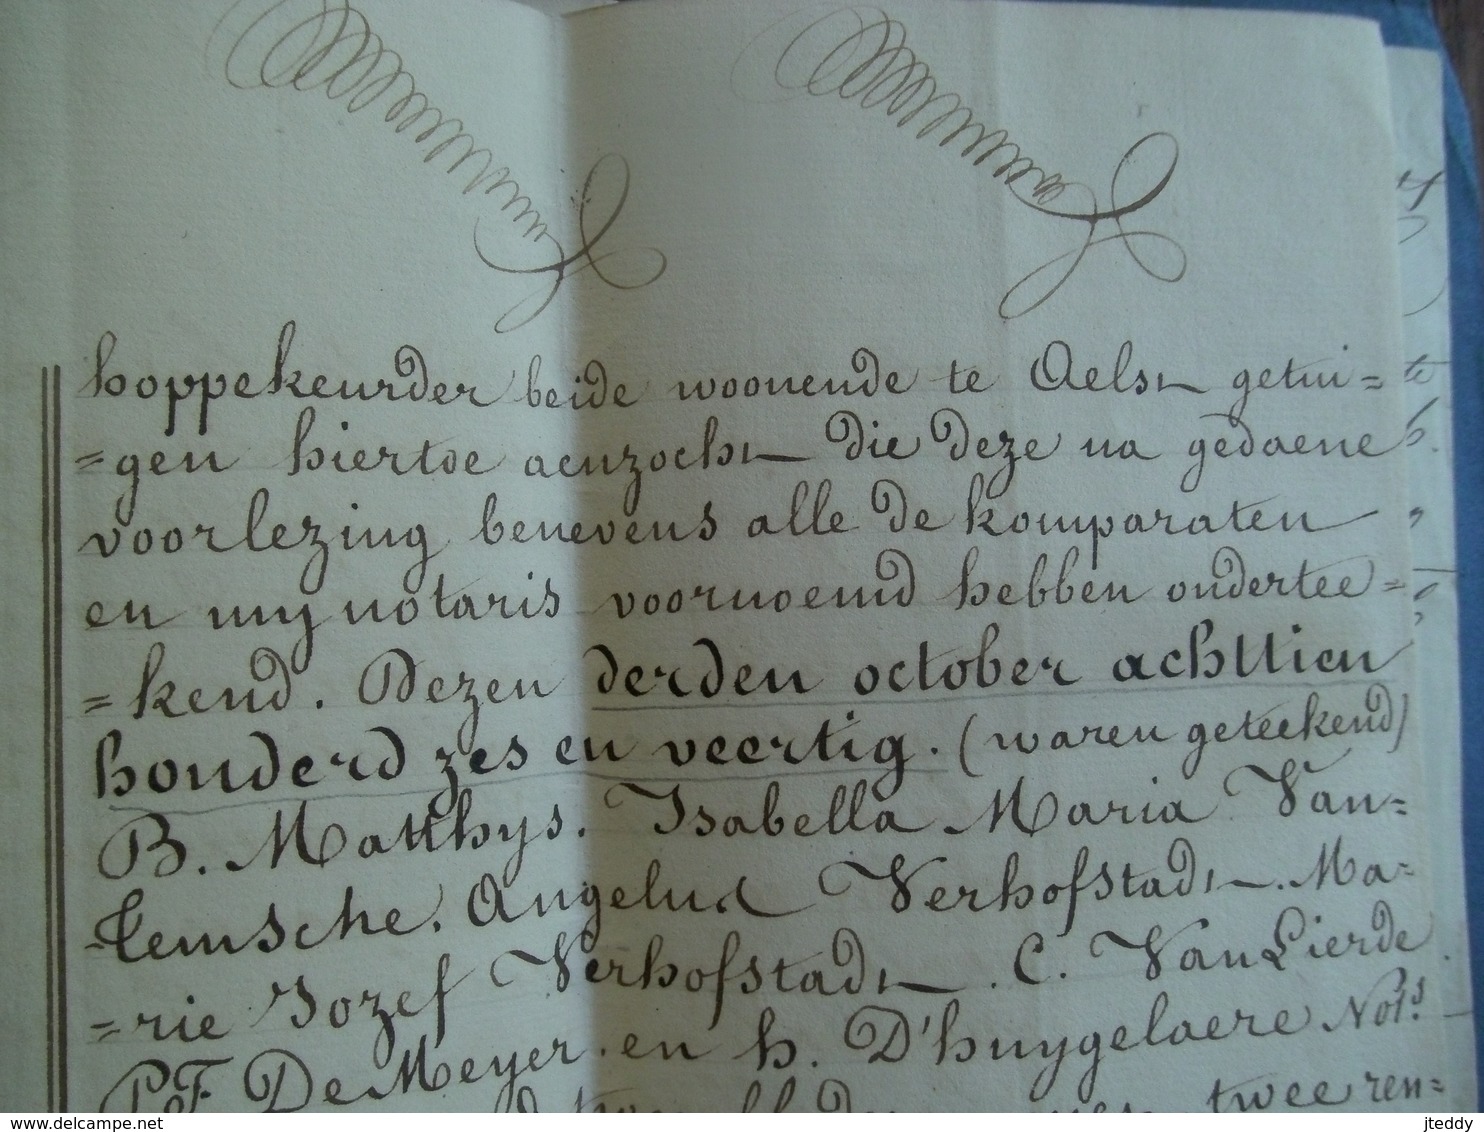 hoppekeurder beide woonende te Aelst getui=
=gen hiertoe aenzocht die deze na gedaene
voorlezing benevens alle de komparaten
en my notaris voornoemd hebben ondertee=
=kend. Dezen derden october achttien
honderd zes en veertig. (waren geteekend)
B. Matthys. Isabella Maria Van=
=temsche. Angelus Verhofstadt. Ma=
=rie Jozef Verhofstadt. C. Van Lierde.
P.F. De Meyer. en h. D'huygelaere Not.s
twee ren=
delcampe.net
jteddy